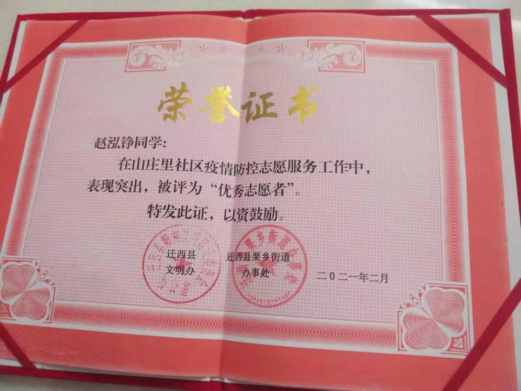 荣誉证书
赵泓铮同学:
在山庄里社区疫情防控志愿服务工作中,
表现突出,被评为“优秀志愿者”。
特发此证,以资鼓励。
迁西县
文明办
迁西县栗乡街道
办事处
二〇二一年二月